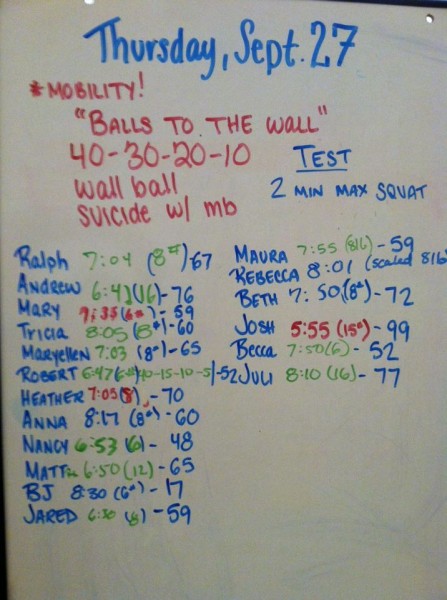 Thursday, Sept. 27
*MOBILITY!
"BALLS TO THE WALL"
40-30-20-10
wall ball
SUICIDE w/ mb
TEST
2 MIN MAX SQUAT
Ralph 7:04 (8#)-67
ANDREW 6:41(16)-76
MARY 7:35(6#)-59
Tricia 8:05(8#)-60
Maryellen 7:03 (8#)-65
ROBERT 6:47(6#)40-15-10-5)-52
HEATHER 7:05(8)-70
ANNA 8:17 (8#)-60
NANCY 6:53 (6)- 48
MATT 6:50(12)-65
BJ 8:30 (6#)-17
JARED 6:30 (8)-59
MAURA 7:55 (8lb)-59
REBECCA 8:01 (scaled 8lb)
BETH 7:50(8#)-72
JOSH 5:55 (15#)-99
Becca 7:50(6)-52
JULI 8:10 (16)-77